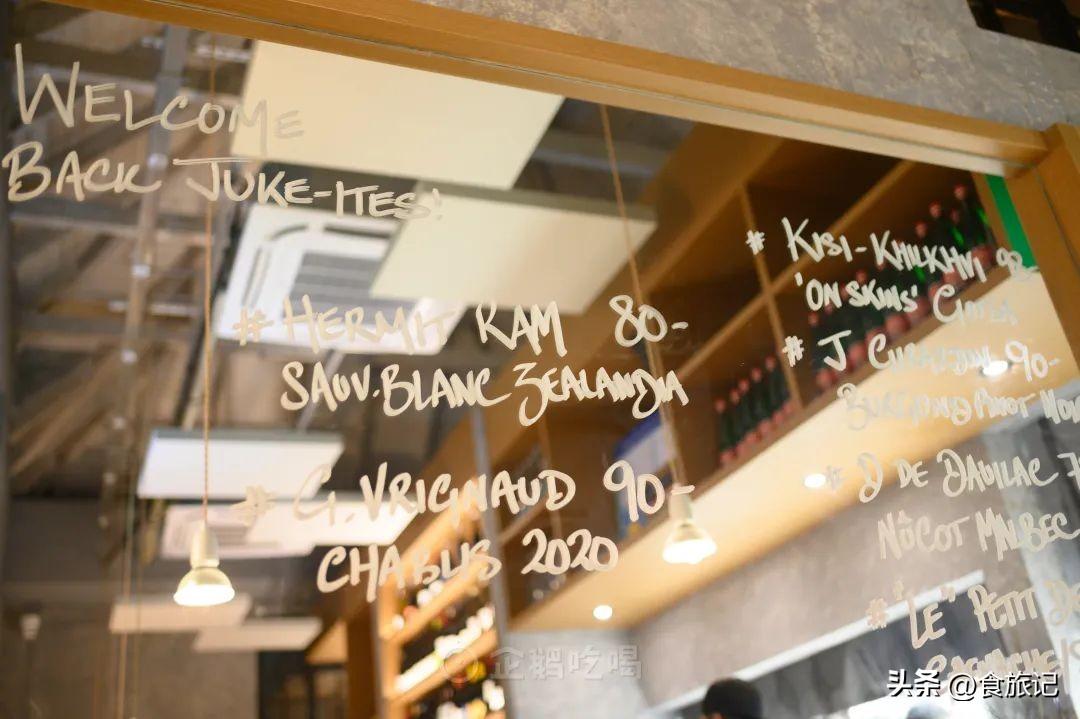 WELCOME
BACK JUKE-ITES!
# HERMIT RAM 80-
SAUV.BLANC ZEALANDIA
# G.VRIGNAUD 90-
CHABLIS 2020
# KISI-KHILKHVI 98
'ON SKINS'
# J 90-
BURGUND PINOT NOI
# D DE DAUILAC 7
NÔCOT MLBEC
# "LE" PETIT DO
企鹅吃喝
头条 @食旅记